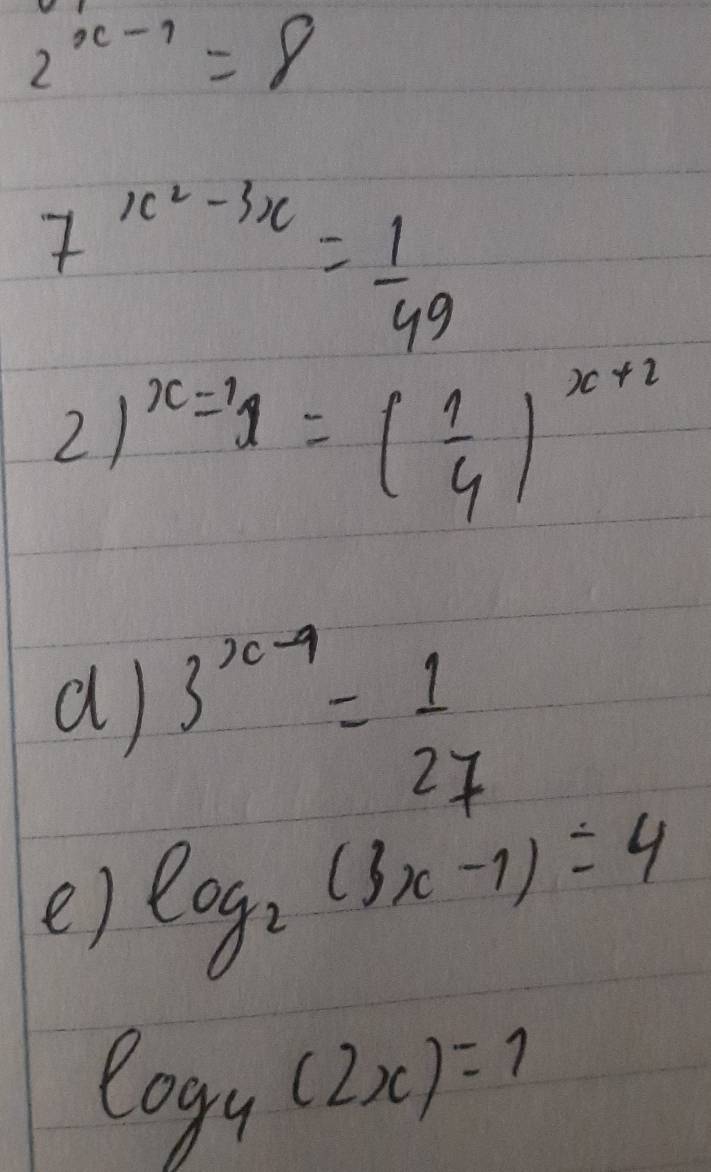 2^{x-1} = 8
7^{x² - 3x} = 1/49
2)^{x=1} 1 = (1/4)^{x+2}
d) 3^{x-1} = 1/27
e) log₂ (3x-1) = 4
log₄ (2x) = 1